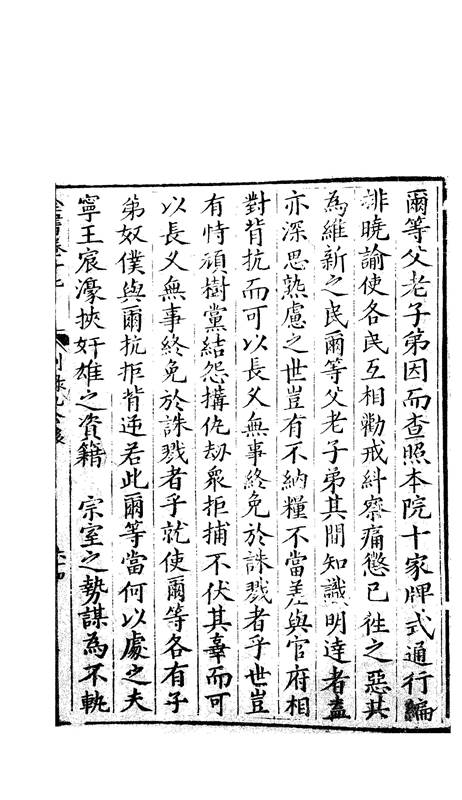 爾等父老子弟因而查照本院十家牌式通行編
排曉諭使各民互相勸戒糾察痛懲已徃之惡其
為維新之民爾等父老子弟其間知識明達者盍
亦深思熟慮之世豈有不納糧不當差與官府相
對背抗而可以長乆無事終免於誅戮者乎世豈
有恃頑樹黨結怨搆仇刼衆拒捕不伏其辜而可
以長乆無事終免於誅戮者乎就使爾等各有子
弟奴僕與爾抗拒背逆若此爾等當何以處之夫
寧王宸濠挾奸雄之資籍 宗室之勢謀為不軌
全書卷十七 別錄九公移